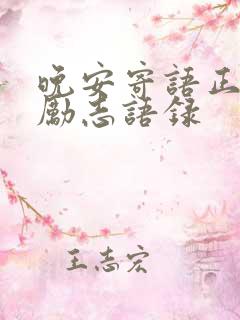 晚安寄語正
勵志語錄
王志宏